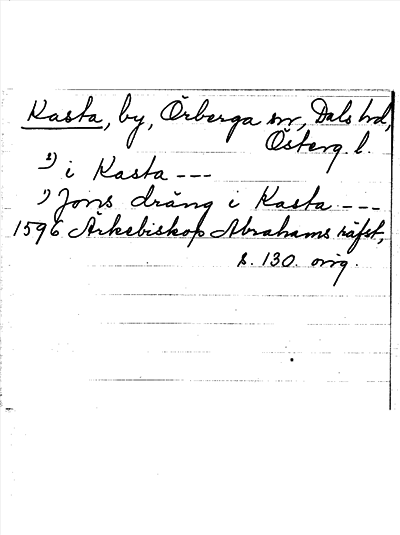 Kasta, by, Örberga sn, Dals hd,
Österg. l.
2) i Kasta ---
1) Jons dräng i Kasta ---
1596 Ärkebiskop Abrahams räfst,
s. 130. orig.